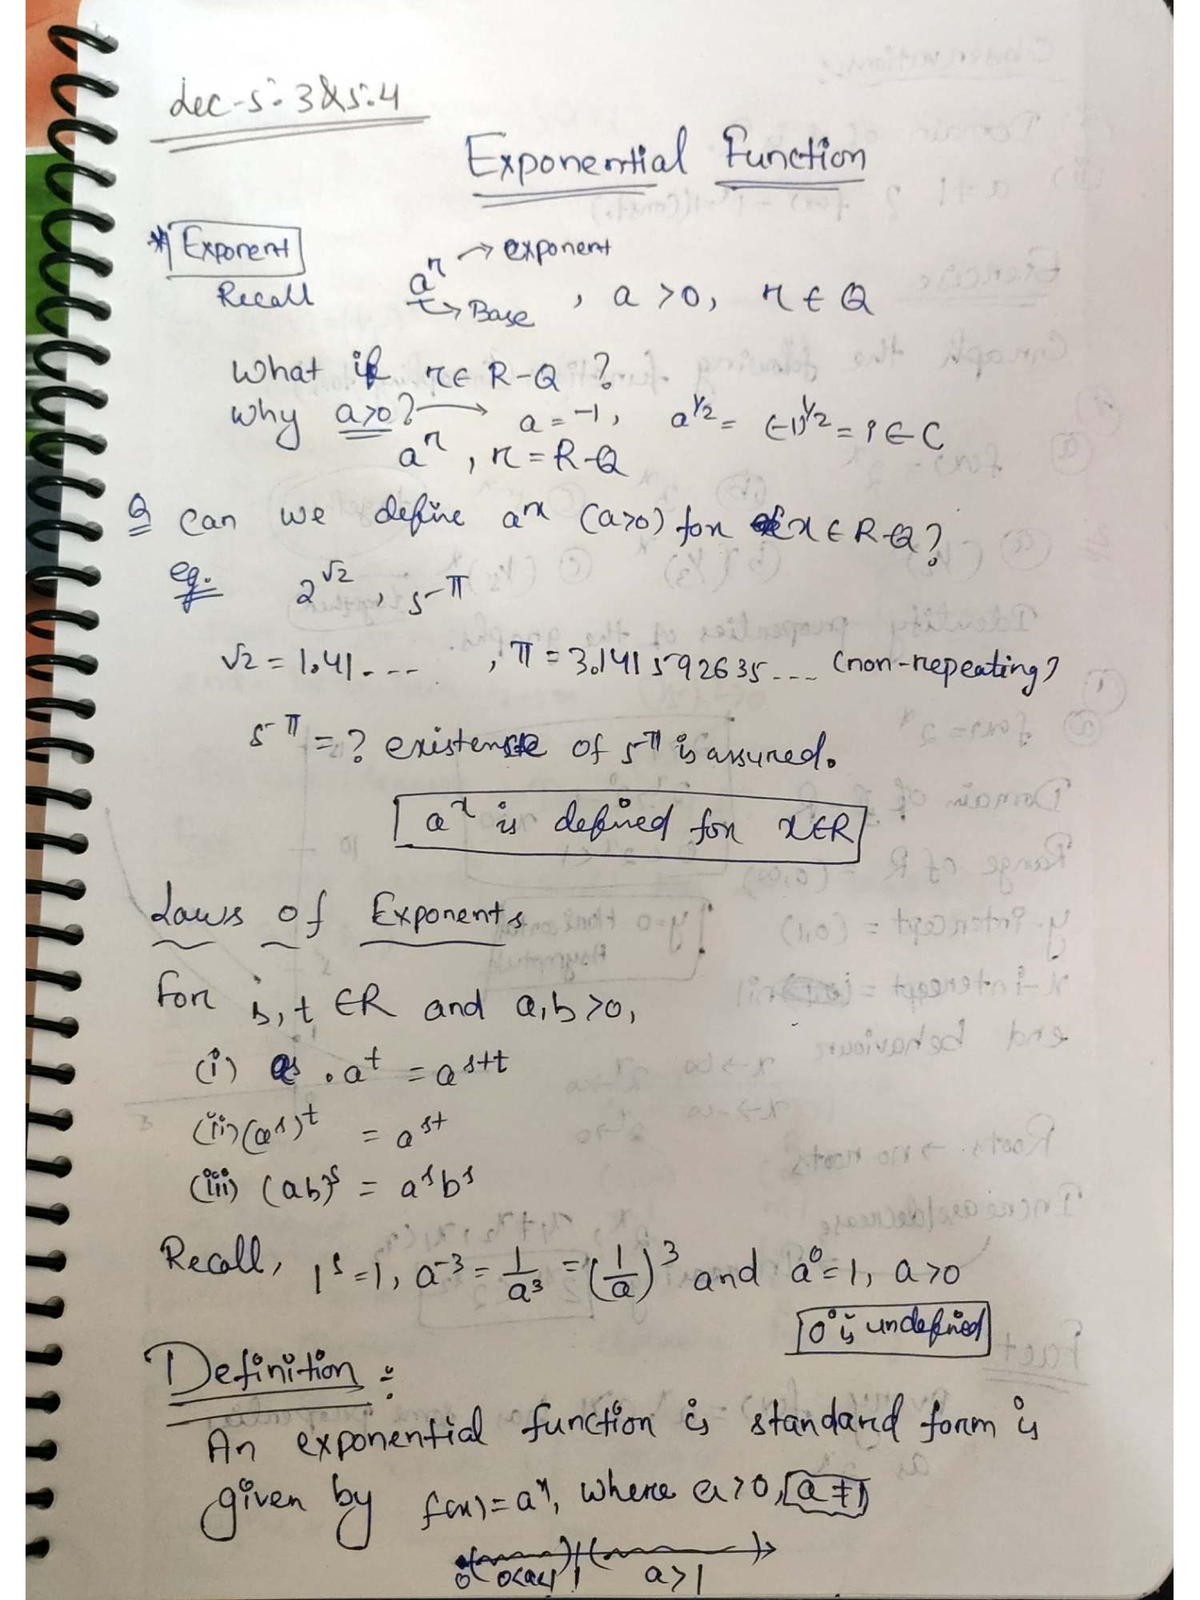 Lec-5.3&5.4
Exponential Function
* Exponent
Recall a^r → exponent
↳ Base , a > 0, r ∈ Q
What if r ∈ R-Q ?
Why a>0? → a = -1, a^1/2 = (-1)^1/2 = i ∈ C
a^r , r = R-Q
Q Can we define a^x (a>0) for x ∈ R-Q?
eg. 2^√2, 5^π
√2 = 1.41.... , π = 3.141592635... (non-repeating)
5^π = ? existense of 5^π is assured.
a^x is defined for x∈R
Laws of Exponents
For s, t ∈R and a,b >0,
(i) a^s . a^t = a^s+t
(ii) (a^s)^t = a^st
(iii) (ab)^s = a^s b^s
Recall, 1^s = 1, a^-3 = 1/a^3 = (1/a)^3 and a^0 = 1, a>0
0^0 is undefined
Definition :
An exponential function is standard form is
given by f(x) = a^x, where a>0, a≠1
0 0<a<1 1 a>1